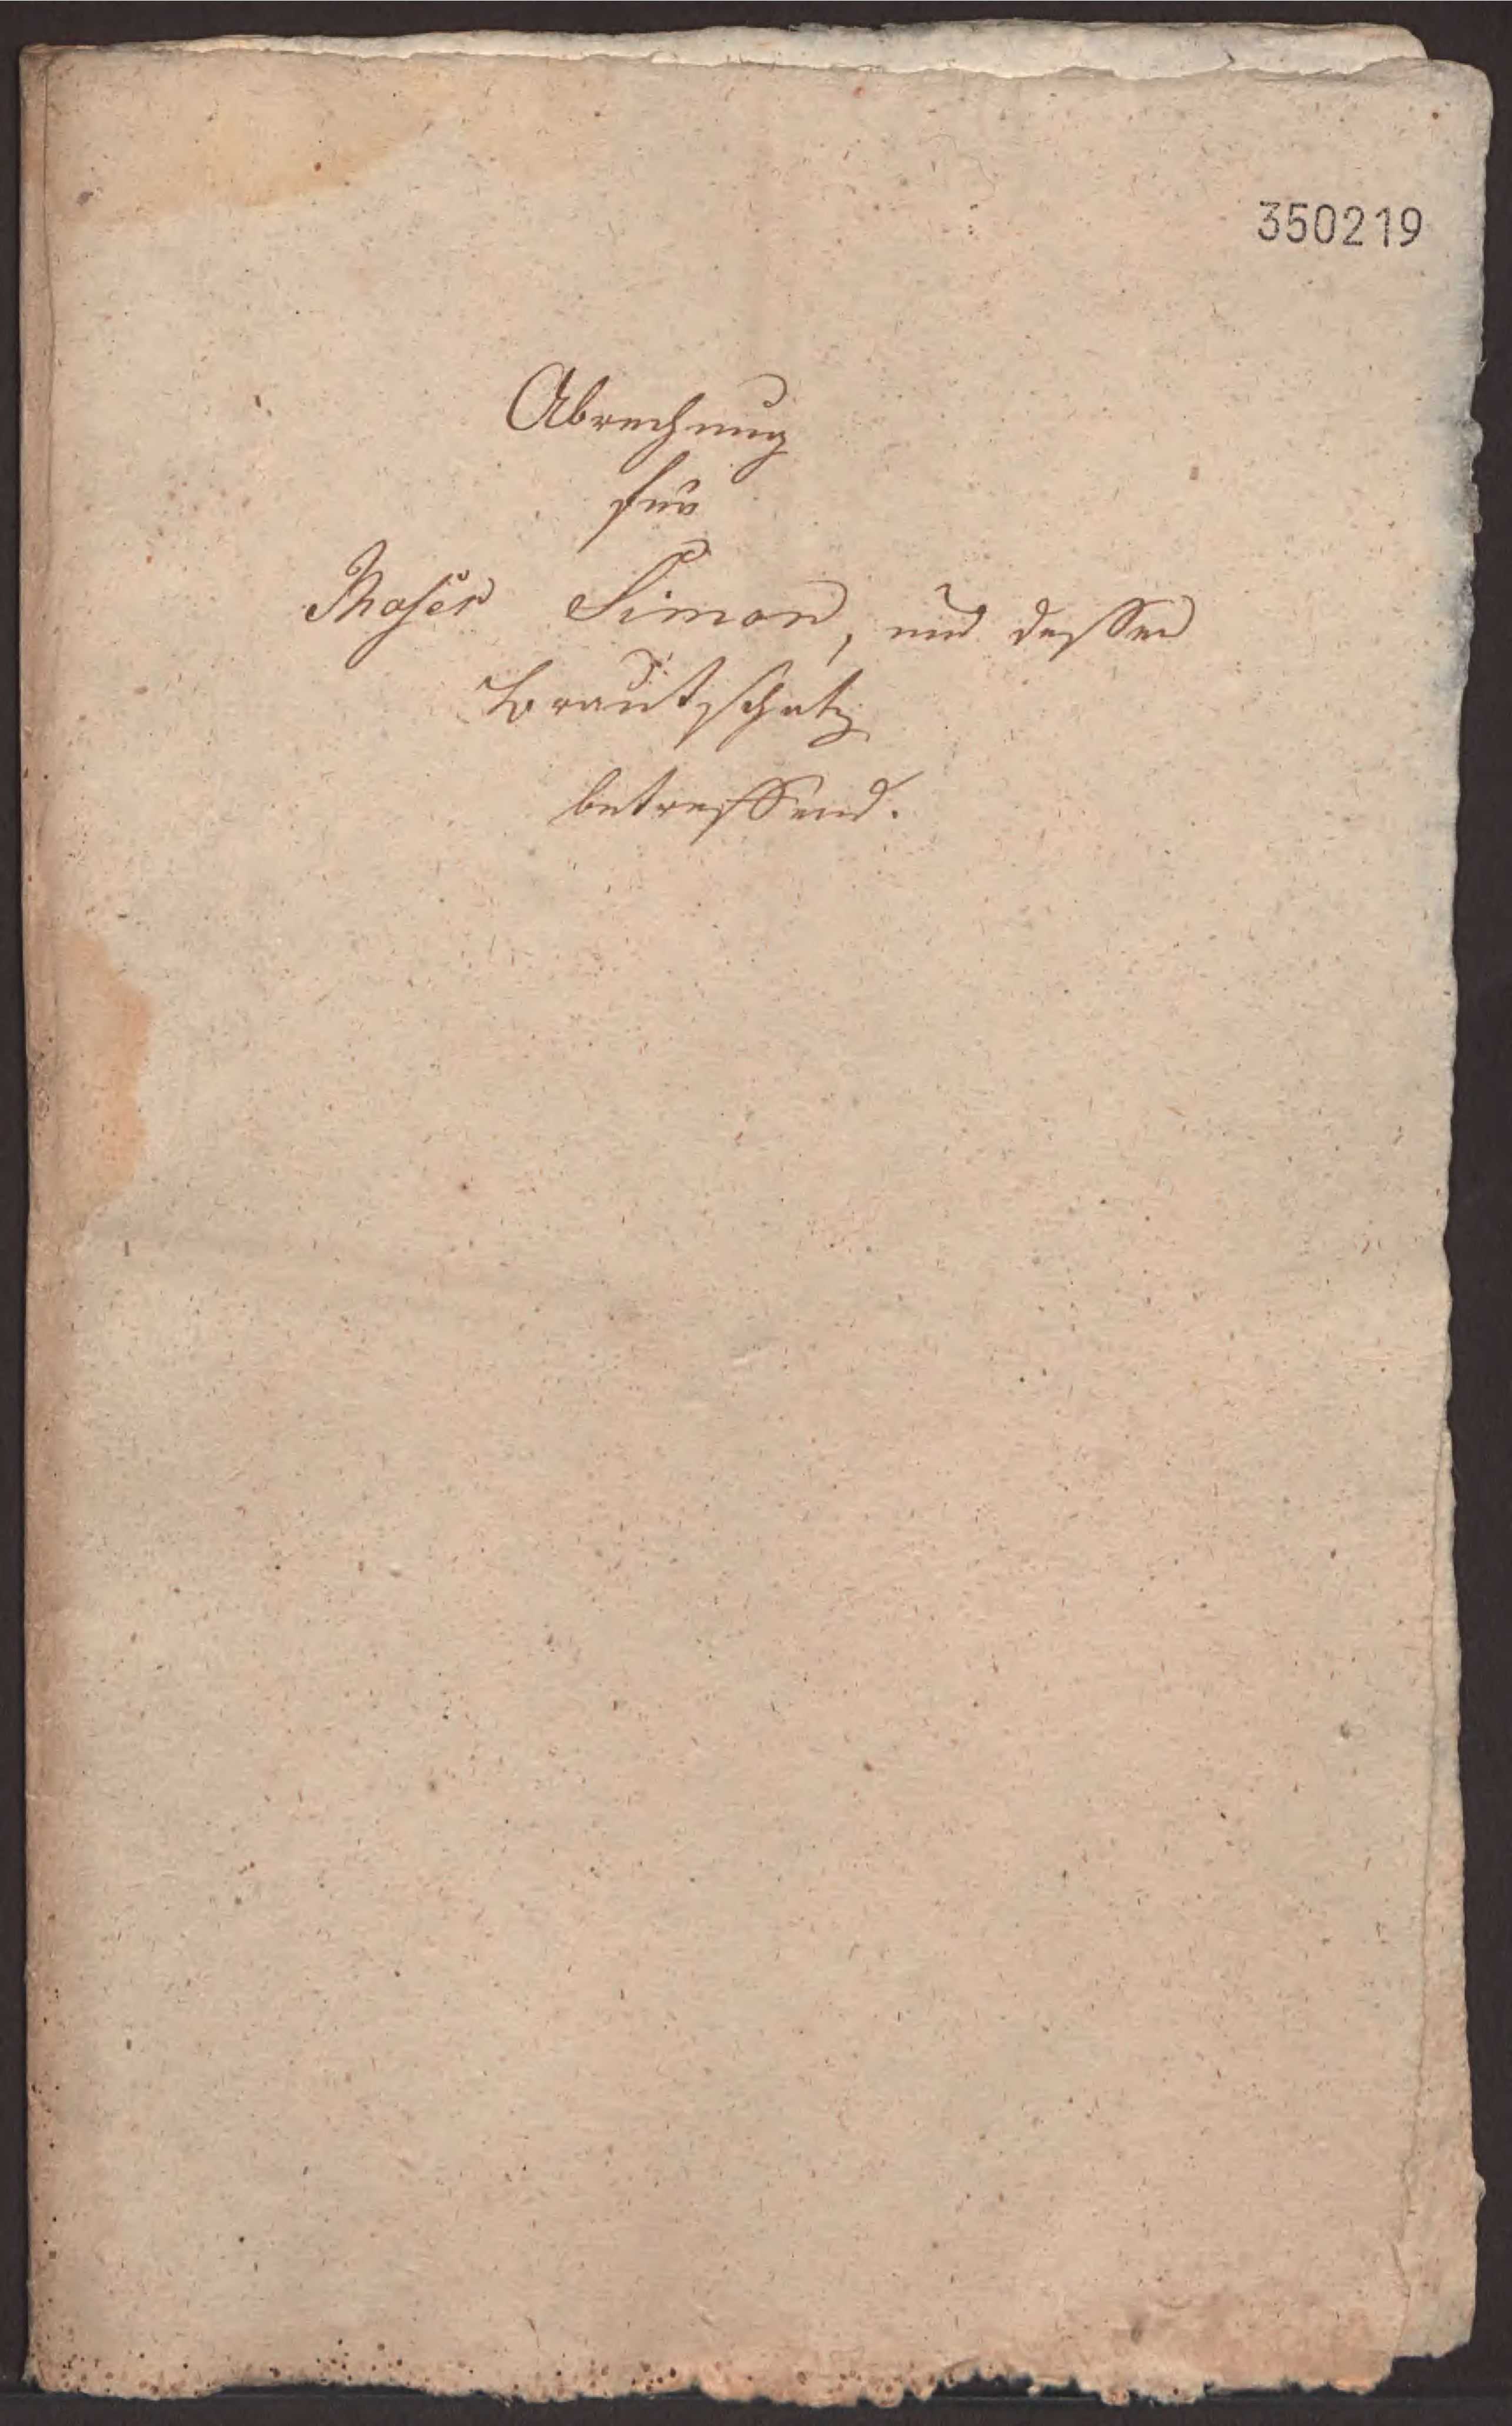 350219
Abrechnung
für
Moser Simon, und dessen
Brautschatz
betreffend.